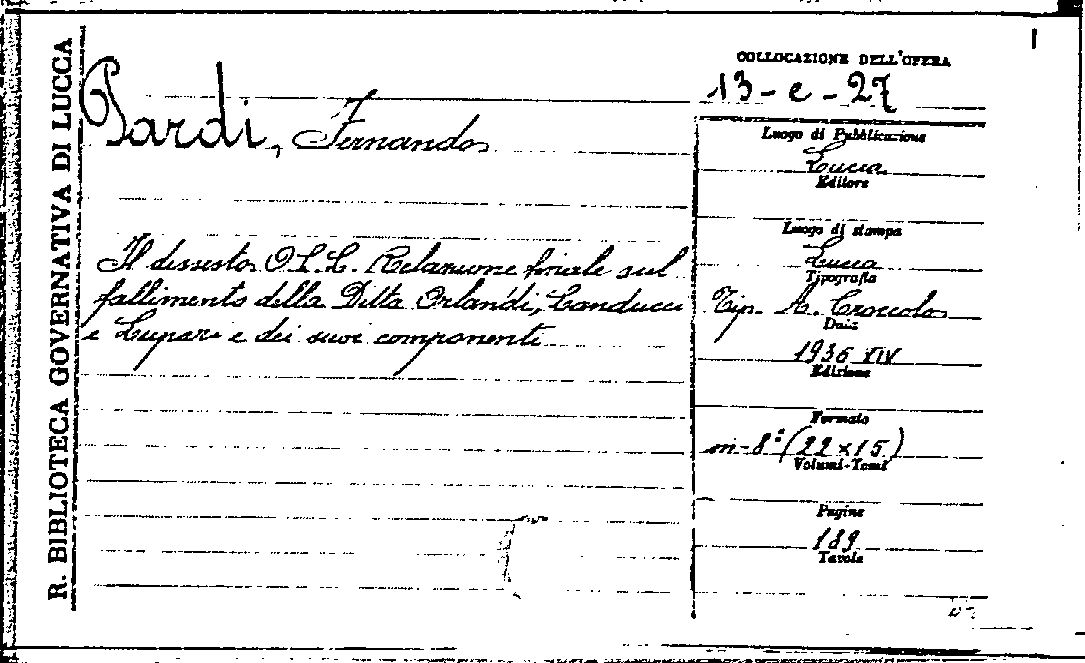 R. BIBLIOTECA GOVERNATIVA DI LUCCA
Pardi, Fernando
Il dissesto O.L.L. Relazione finale sul
fallimento della Ditta Orlandi, Landucci
e Lupari e dei suoi componenti
COLLOCAZIONE DELL'OPERA
13-e-27
Luogo di Pubblicazione
Lucca
Editore
Luogo di stampa
Lucca
Tipografia
Tip. A. Croccolo
Data
1936 XIV
Edizione
Formato
in-8° (22×15)
Volumi-Tomi
Pagine
189
Tavole